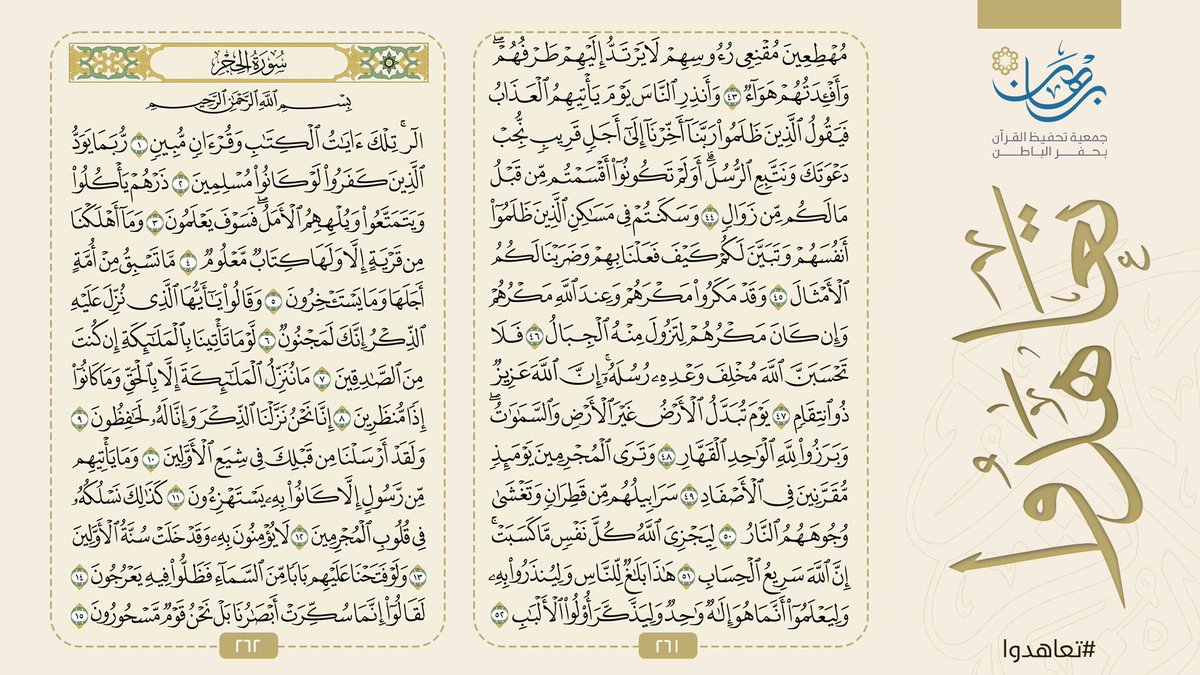 برهان
جمعية تحفيظ القرآن
بحفر الباطن
تعاهدوا
#تعاهدوا
مُهْطِعِينَ مُقْنِعِي رُءُوسِهِمْ لَا يَرْتَدُّ إِلَيْهِمْ طَرْفُهُمْ ۖ
وَأَفْـِٔدَتُهُمْ هَوَآءٌ ٤٣ وَأَنذِرِ ٱلنَّاسَ يَوْمَ يَأْتِيهِمُ ٱلْعَذَابُ
فَيَقُولُ ٱلَّذِينَ ظَلَمُوا۟ رَبَّنَآ أَخِّرْنَآ إِلَىٰٓ أَجَلٍ قَرِيبٍ نُّجِبْ
دَعْوَتَكَ وَنَتَّبِعِ ٱلرُّسُلَ ۗ أَوَلَمْ تَكُونُوٓا۟ أَقْسَمْتُم مِّن قَبْلُ
مَا لَكُم مِّن زَوَالٍ ٤٤ وَسَكَنتُمْ فِى مَسَـٰكِنِ ٱلَّذِينَ ظَلَمُوٓا۟
أَنفُسَهُمْ وَتَبَيَّنَ لَكُمْ كَيْفَ فَعَلْنَا بِهِمْ وَضَرَبْنَا لَكُمُ
ٱلْأَمْثَالَ ٤٥ وَقَدْ مَكَرُوا۟ مَكْرَهُمْ وَعِندَ ٱللَّهِ مَكْرُهُمْ
وَإِن كَانَ مَكْرُهُمْ لِتَزُولَ مِنْهُ ٱلْجِبَالُ ٤٦ فَلَا
تَحْسَبَنَّ ٱللَّهَ مُخْلِفَ وَعْدِهِۦ رُسُلَهُۥٓ ۗ إِنَّ ٱللَّهَ عَزِيزٌ
ذُو ٱنتِقَامٍ ٤٧ يَوْمَ تُبَدَّلُ ٱلْأَرْضُ غَيْرَ ٱلْأَرْضِ وَٱلسَّمَـٰوَٰتُ ۖ
وَبَرَزُوا۟ لِلَّهِ ٱلْوَٰحِدِ ٱلْقَهَّارِ ٤٨ وَتَرَى ٱلْمُجْرِمِينَ يَوْمَئِذٍ
مُّقَرَّنِينَ فِى ٱلْأَصْفَادِ ٤٩ سَرَابِيلُهُم مِّن قَطِرَانٍ وَتَغْشَىٰ
وُجُوهَهُمُ ٱلنَّارُ ٥٠ لِيَجْزِىَ ٱللَّهُ كُلَّ نَفْسٍ مَّا كَسَبَتْ ۚ
إِنَّ ٱللَّهَ سَرِيعُ ٱلْحِسَابِ ٥١ هَـٰذَا بَلَـٰغٌ لِّلنَّاسِ وَلِيُنذَرُوا۟ بِهِۦ
وَلِيَعْلَمُوٓا۟ أَنَّمَا هُوَ إِلَـٰهٌ وَٰحِدٌ وَلِيَذَّكَّرَ أُو۟لُوا۟ ٱلْأَلْبَـٰبِ ٥٢
٢٦١
سُورَةُ الحِجْرِ
بِسْمِ ٱللَّهِ ٱلرَّحْمَـٰنِ ٱلرَّحِيمِ
الٓر ۚ تِلْكَ ءَايَـٰتُ ٱلْكِتَـٰبِ وَقُرْءَانٍ مُّبِينٍ ١ رُّبَمَا يَوَدُّ
ٱلَّذِينَ كَفَرُوا۟ لَوْ كَانُوا۟ مُسْلِمِينَ ٢ ذَرْهُمْ يَأْكُلُوا۟
وَيَتَمَتَّعُوا۟ وَيُلْهِهِمُ ٱلْأَمَلُ ۖ فَسَوْفَ يَعْلَمُونَ ٣ وَمَآ أَهْلَكْنَا
مِن قَرْيَةٍ إِلَّا وَلَهَا كِتَابٌ مَّعْلُومٌ ٤ مَّا تَسْبِقُ مِنْ أُمَّةٍ
أَجَلَهَا وَمَا يَسْتَـْٔخِرُونَ ٥ وَقَالُوا۟ يَـٰٓأَيُّهَا ٱلَّذِى نُزِّلَ عَلَيْهِ
ٱلذِّكْرُ إِنَّكَ لَمَجْنُونٌ ٦ لَّوْ مَا تَأْتِينَا بِٱلْمَلَـٰٓئِكَةِ إِن كُنتَ
مِنَ ٱلصَّـٰدِقِينَ ٧ مَا نُنَزِّلُ ٱلْمَلَـٰٓئِكَةَ إِلَّا بِٱلْحَقِّ وَمَا كَانُوٓا۟
إِذًا مُّنظَرِينَ ٨ إِنَّا نَحْنُ نَزَّلْنَا ٱلذِّكْرَ وَإِنَّا لَهُۥ لَحَـٰفِظُونَ ٩
وَلَقَدْ أَرْسَلْنَا مِن قَبْلِكَ فِى شِيَعِ ٱلْأَوَّلِينَ ١٠ وَمَا يَأْتِيهِم
مِّن رَّسُولٍ إِلَّا كَانُوا۟ بِهِۦ يَسْتَهْزِءُونَ ١١ كَذَٰلِكَ نَسْلُكُهُۥ
فِى قُلُوبِ ٱلْمُجْرِمِينَ ١٢ لَا يُؤْمِنُونَ بِهِۦ وَقَدْ خَلَتْ سُنَّةُ ٱلْأَوَّلِينَ
١٣ وَلَوْ فَتَحْنَا عَلَيْهِم بَابًا مِّنَ ٱلسَّمَآءِ فَظَلُّوا۟ فِيهِ يَعْرُجُونَ ١٤
لَقَالُوٓا۟ إِنَّمَا سُكِّرَتْ أَبْصَـٰرُنَا بَلْ نَحْنُ قَوْمٌ مَّسْحُورُونَ ١٥
٢٦٢